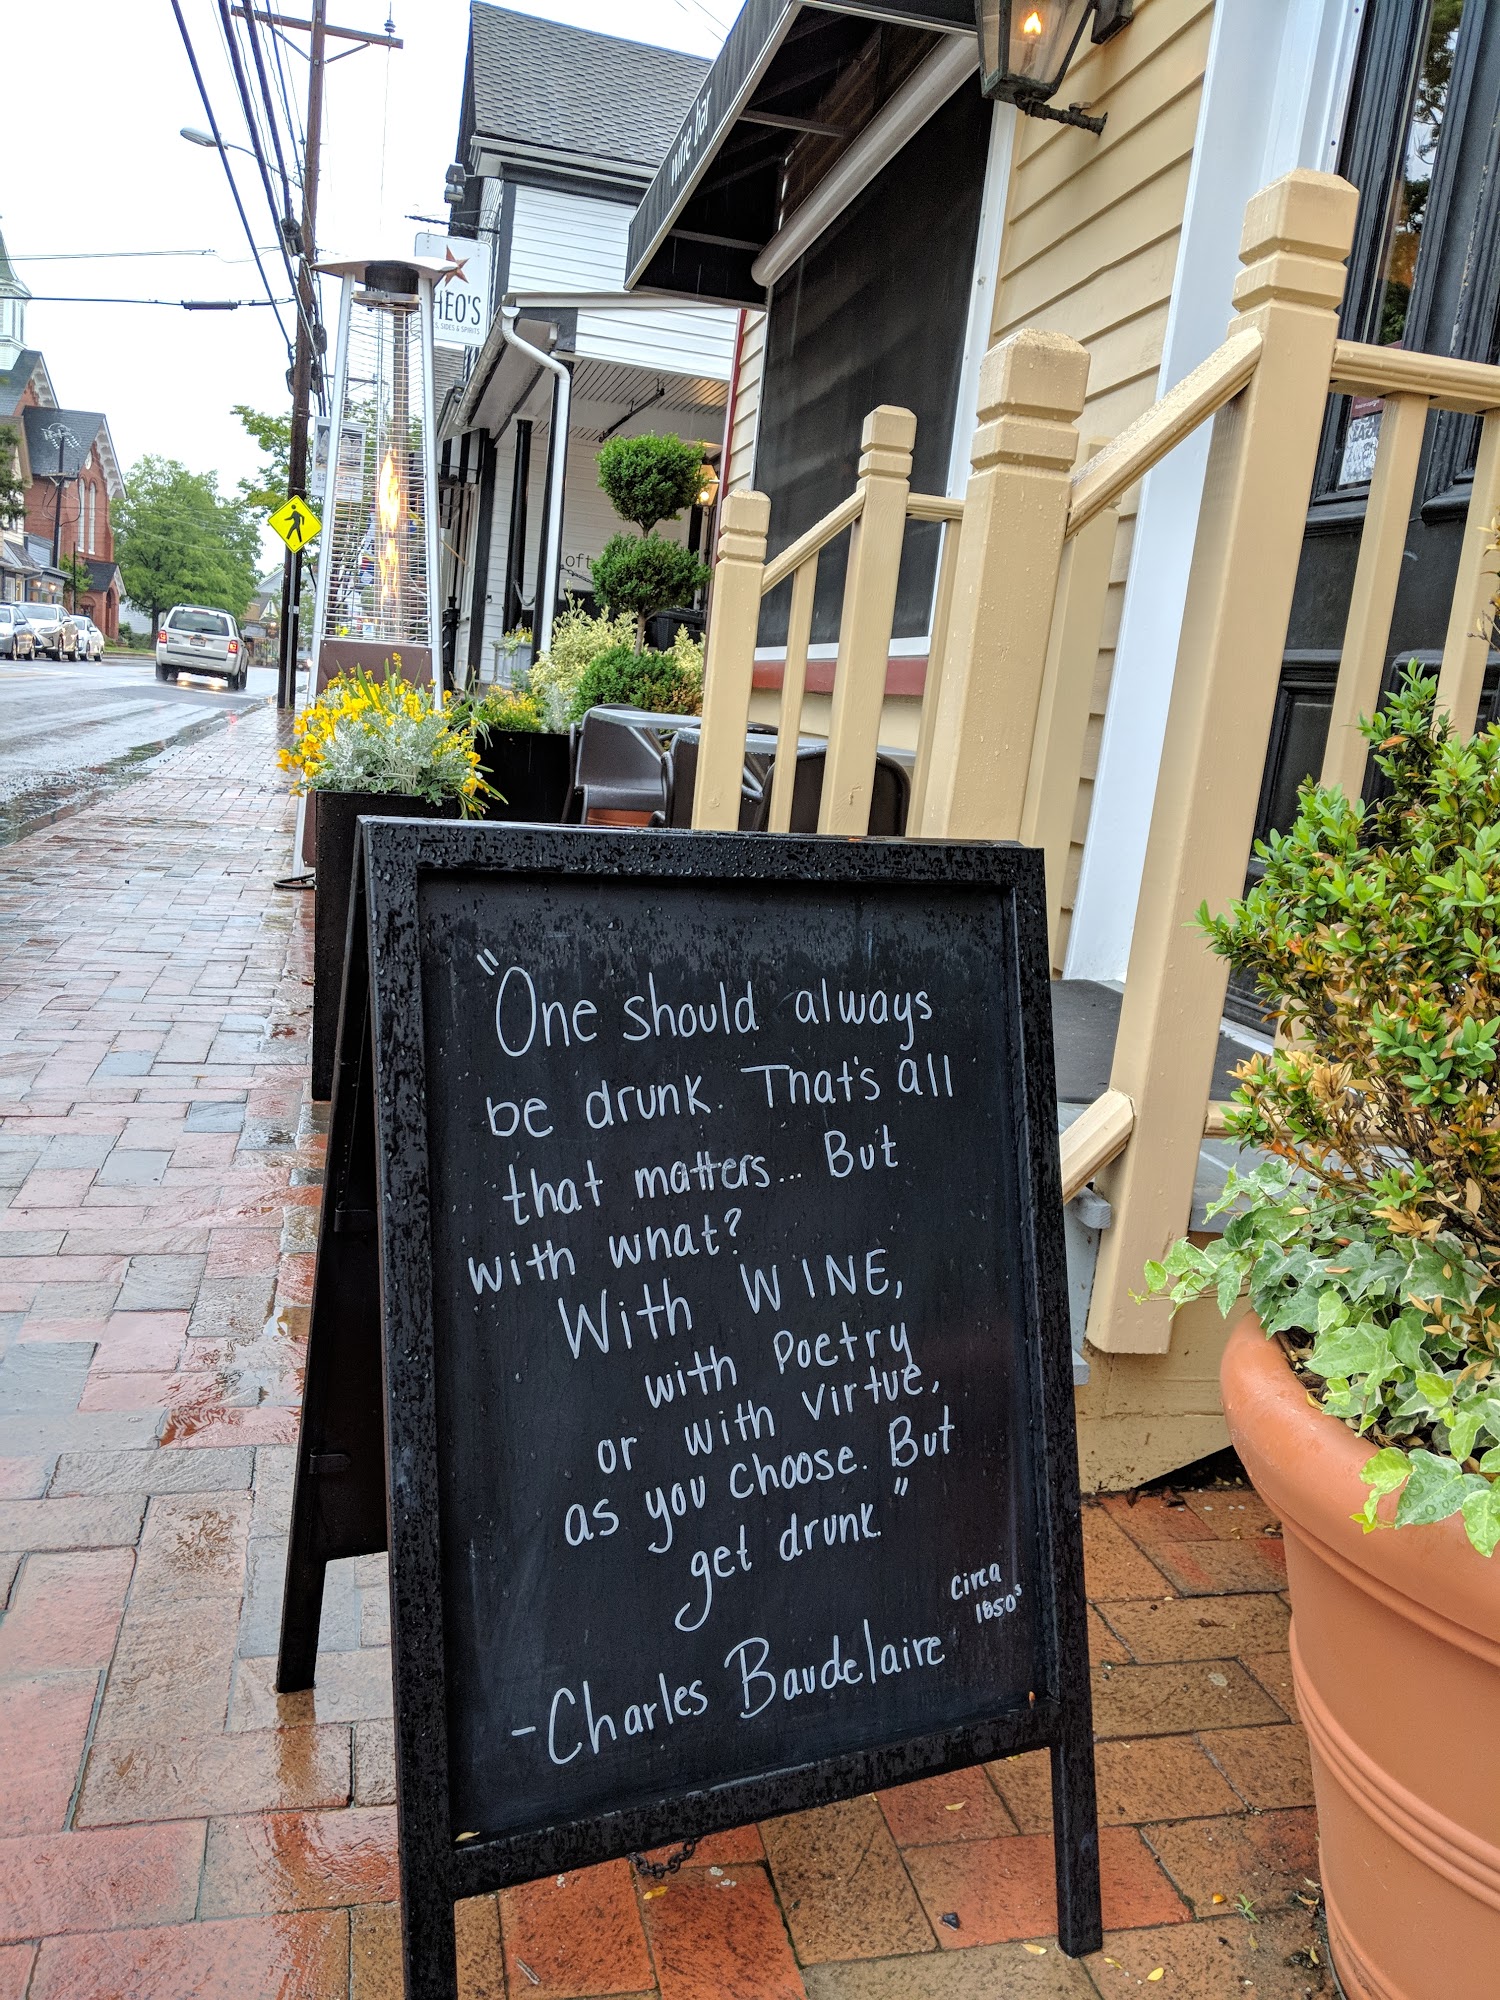 wine bar
HEO'S
S, SIDES & SPIRITS
oft
"One should always
be drunk. That's all
that matters... But
with what?
With WINE,
with Poetry
or with virtue,
as you choose. But
get drunk."
circa
1850s
-Charles Baudelaire